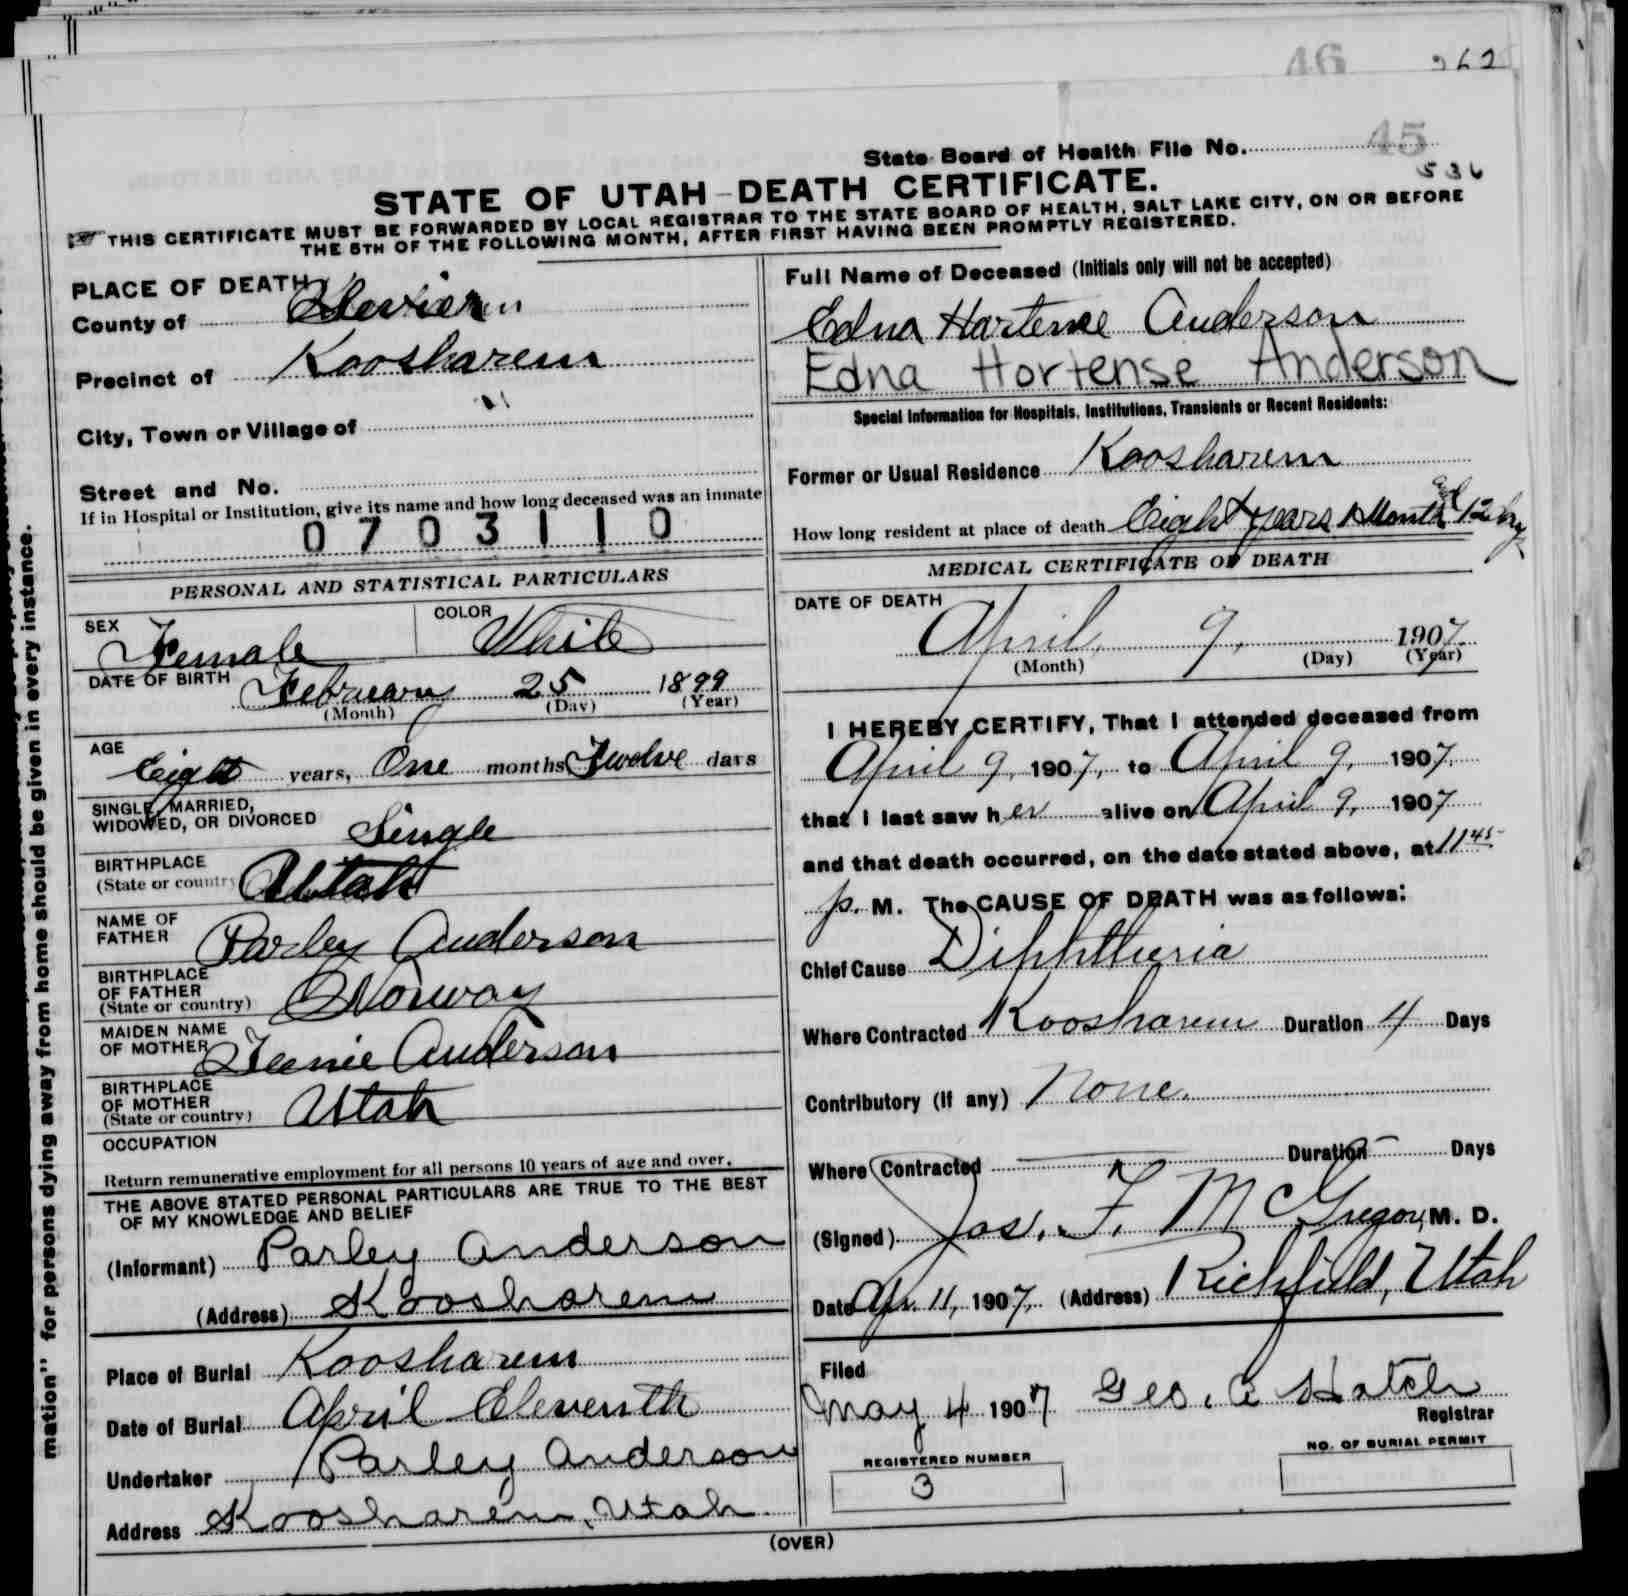 46 262
State Board of Health File No. 45
536
STATE OF UTAH-DEATH CERTIFICATE.
THIS CERTIFICATE MUST BE FORWARDED BY LOCAL REGISTRAR TO THE STATE BOARD OF HEALTH, SALT LAKE CITY, ON OR BEFORE
THE 5TH OF THE FOLLOWING MONTH, AFTER FIRST HAVING BEEN PROMPTLY REGISTERED.
PLACE OF DEATH
County of Sevier
Precinct of Koosharem
City, Town or Village of "
Street and No.
If in Hospital or Institution, give its name and how long deceased was an inmate
0703110
PERSONAL AND STATISTICAL PARTICULARS
SEX Female COLOR White
DATE OF BIRTH February 25 1899
(Month) (Day) (Year)
AGE Eight years, One months Twelve days
SINGLE, MARRIED,
WIDOWED, OR DIVORCED Single
BIRTHPLACE
(State or country) Utah
NAME OF
FATHER Parley Anderson
BIRTHPLACE
OF FATHER
(State or country) Norway
MAIDEN NAME
OF MOTHER Teenie Anderson
BIRTHPLACE
OF MOTHER
(State or country) Utah
OCCUPATION
Return remunerative employment for all persons 10 years of age and over.
THE ABOVE STATED PERSONAL PARTICULARS ARE TRUE TO THE BEST
OF MY KNOWLEDGE AND BELIEF
(Informant) Parley Anderson
(Address) Koosharem
Place of Burial Koosharem
Date of Burial April Eleventh
Undertaker Parley Anderson
Address Koosharem, Utah.
Full Name of Deceased (Initials only will not be accepted)
Edna Hartense Anderson
Edna Hortense Anderson
Special Information for Hospitals, Institutions, Transients or Recent Residents:
Former or Usual Residence Koosharem
How long resident at place of death Eight years 1 Month and 12 days
MEDICAL CERTIFICATE OF DEATH
DATE OF DEATH
April 9, 1907.
(Month) (Day) (Year)
I HEREBY CERTIFY, That I attended deceased from
April 9, 1907, to April 9, 1907,
that I last saw her alive on April 9, 1907
and that death occurred, on the date stated above, at 11 45
p. M. The CAUSE OF DEATH was as follows:
Chief Cause Diphtheria
Where Contracted Koosharem Duration 4 Days
Contributory (if any) None.
Where Contracted Duration Days
(Signed) Jos. F. McGregor, M. D.
Date Apr. 11, 1907, (Address) Richfield, Utah
Filed
May 4 1907 Geo. A Hatch
Registrar
REGISTERED NUMBER
3
NO. OF BURIAL PERMIT
(OVER)
mation" for persons dying away from home should be given in every instance.